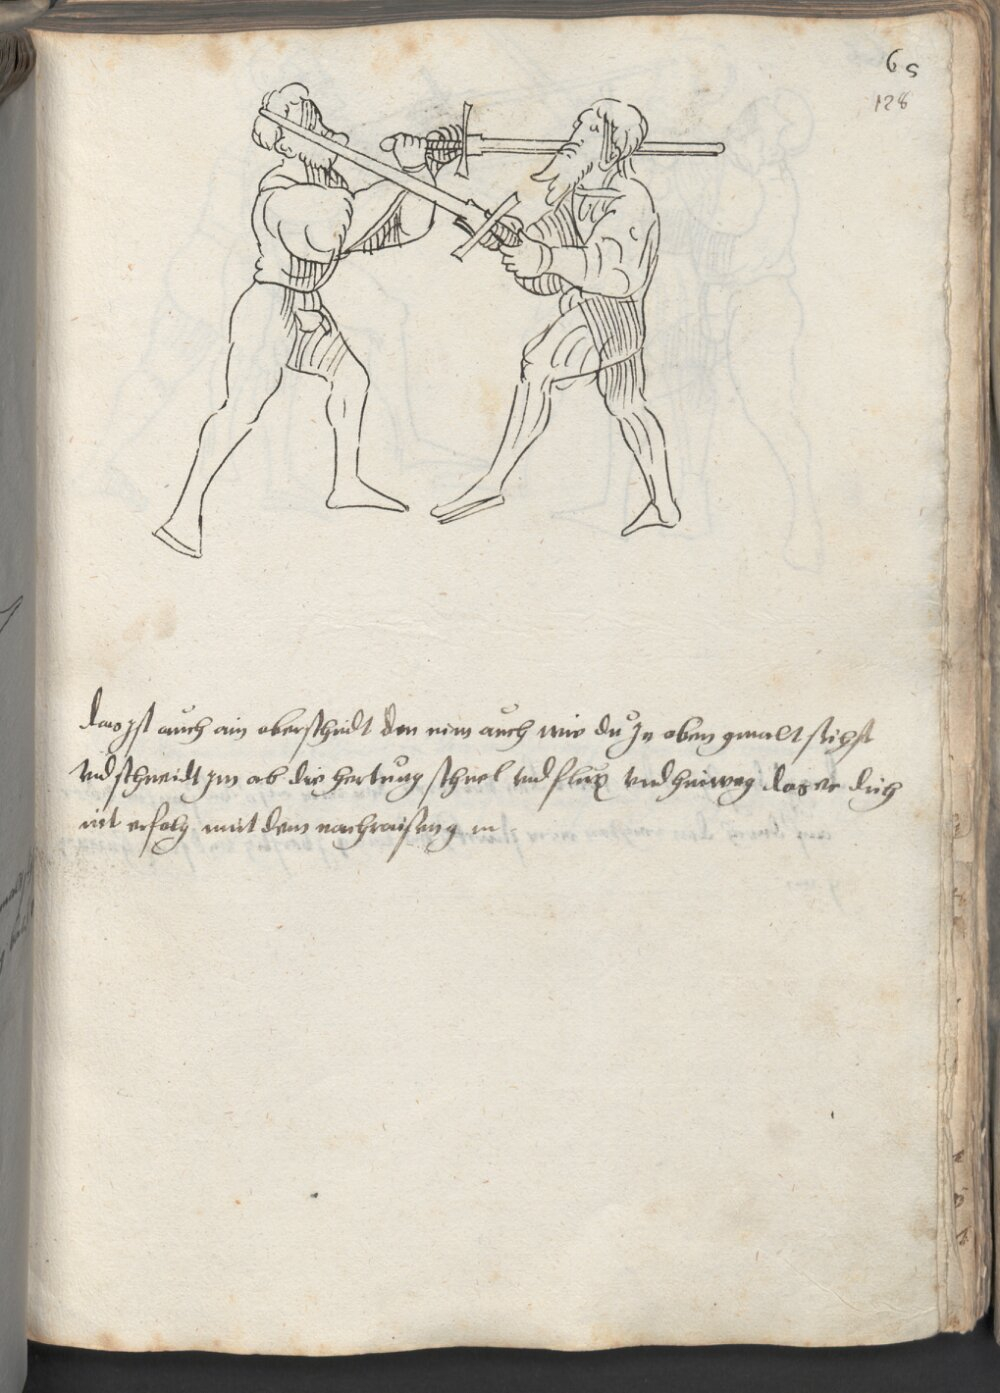 65
128
das ist auch ain oberschnidt den nim auch wie du Jn oben gmalt sichst
vnd schneidt jm ab die hertung schnel vnd flux vnd hinweg das er dich
nit erfolg mit dem nachraisen